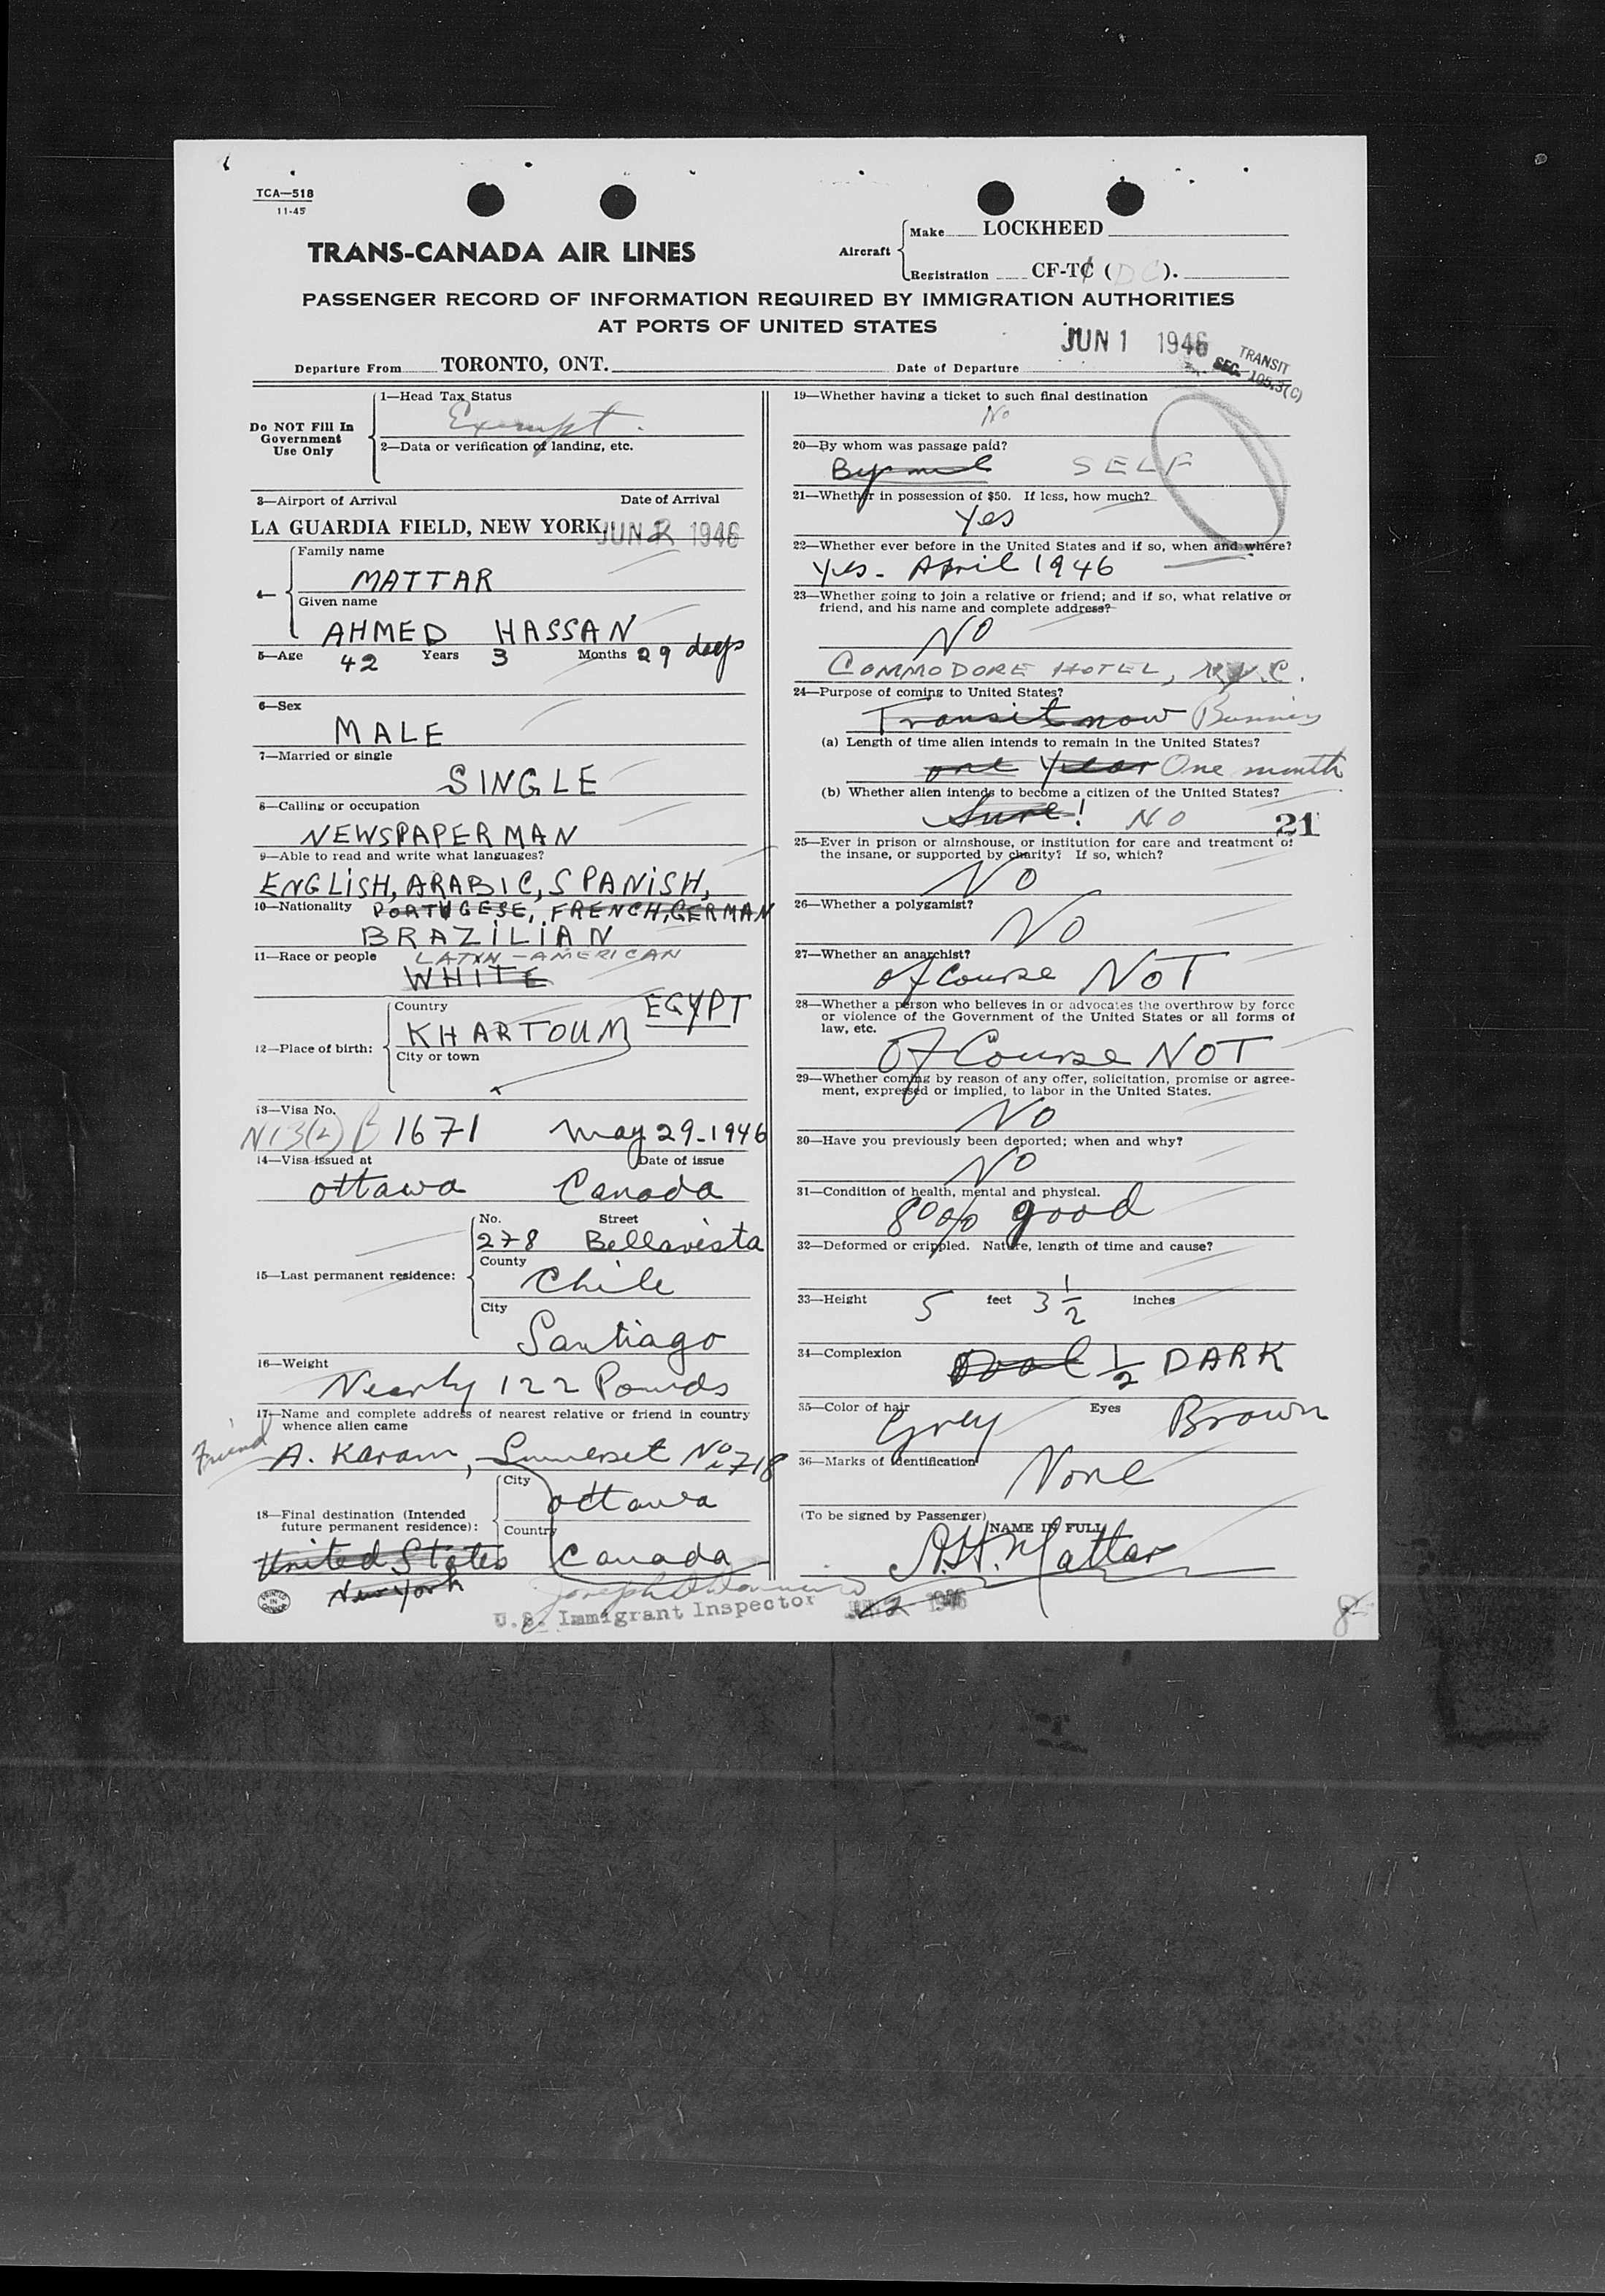 TCA—518
11-45
TRANS-CANADA AIR LINES
Aircraft
Make LOCKHEED
Registration CF-TC (DC).
PASSENGER RECORD OF INFORMATION REQUIRED BY IMMIGRATION AUTHORITIES
AT PORTS OF UNITED STATES
JUN 1 1946
TRANSIT
SEC. 105.3(C)
Departure From TORONTO, ONT. Date of Departure
Do NOT Fill In
Government
Use Only
1—Head Tax Status
Exempt.
2—Data or verification of landing, etc.
3—Airport of Arrival Date of Arrival
LA GUARDIA FIELD, NEW YORK. JUN 2 1946
Family name
MATTAR
Given name
AHMED HASSAN
5—Age 42 Years 3 Months 29 days
6—Sex
MALE
7—Married or single
SINGLE
8—Calling or occupation
NEWSPAPERMAN
9—Able to read and write what languages?
ENGLISH, ARABIC, SPANISH,
10—Nationality PORTUGESE, FRENCH, GERMAN
BRAZILIAN
11—Race or people LATIN-AMERICAN
WHITE
12—Place of birth:
Country EGYPT
KHARTOUM
City or town
13—Visa No.
B 1671 May 29-1946
14—Visa issued at Date of issue
Ottawa Canada
15—Last permanent residence:
No. Street
278 Bellavista
County
Chile
City
Santiago
16—Weight
Nearly 122 Pounds
17—Name and complete address of nearest relative or friend in country
whence alien came
Friend A. Karam, Somerset No 718
18—Final destination (Intended
future permanent residence):
City
Ottawa
Country
United States Canada
New York
PRINTED IN CANADA
U.S. Immigrant Inspector
19—Whether having a ticket to such final destination
No
20—By whom was passage paid?
By me SELF
21—Whether in possession of $50. If less, how much?
Yes
22—Whether ever before in the United States and if so, when and where?
Yes - April 1946
23—Whether going to join a relative or friend; and if so, what relative or
friend, and his name and complete address?
NO
COMMODORE HOTEL, N.Y.C.
24—Purpose of coming to United States?
Transit now Business
(a) Length of time alien intends to remain in the United States?
one year One month
(b) Whether alien intends to become a citizen of the United States?
Sure! NO
21
25—Ever in prison or almshouse, or institution for care and treatment of
the insane, or supported by charity? If so, which?
NO
26—Whether a polygamist?
NO
27—Whether an anarchist?
of course NOT
28—Whether a person who believes in or advocates the overthrow by force
or violence of the Government of the United States or all forms of
law, etc.
Of Course NOT
29—Whether coming by reason of any offer, solicitation, promise or agree-
ment, expressed or implied, to labor in the United States.
NO
30—Have you previously been deported; when and why?
NO
31—Condition of health, mental and physical.
80% good
32—Deformed or crippled. Nature, length of time and cause?
33—Height 5 feet 3 1/2 inches
34—Complexion Oval 1/2 DARK
35—Color of hair Grey Eyes Brown
36—Marks of identification
None
(To be signed by Passenger)
NAME IN FULL
A.H. Mattar
JUN 2 1946